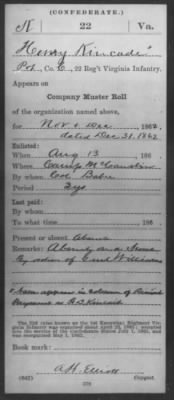 (CONFEDERATE.)
K 22 Va.
Henry Kincade
Pvt., Co. E, 22 Reg't Virginia Infantry.
Appears on
Company Muster Roll
of the organization named above,
for Nov & Dec, 1862.
dated Dec 31, 1862
Enlisted:
When Aug 13, 186
Where Camp McCauslin
By whom Col Baber
Period 3 ys
Last paid:
By whom
To what time , 186 .
Present or absent Absent
Remarks: Absent
By order of Genl Williams
Name appears in column of
as
The 22d (also known as the 1st Kanawha) Regiment Virginia Infantry was
Book mark:
A. H. Elliott
(642) Copyist.